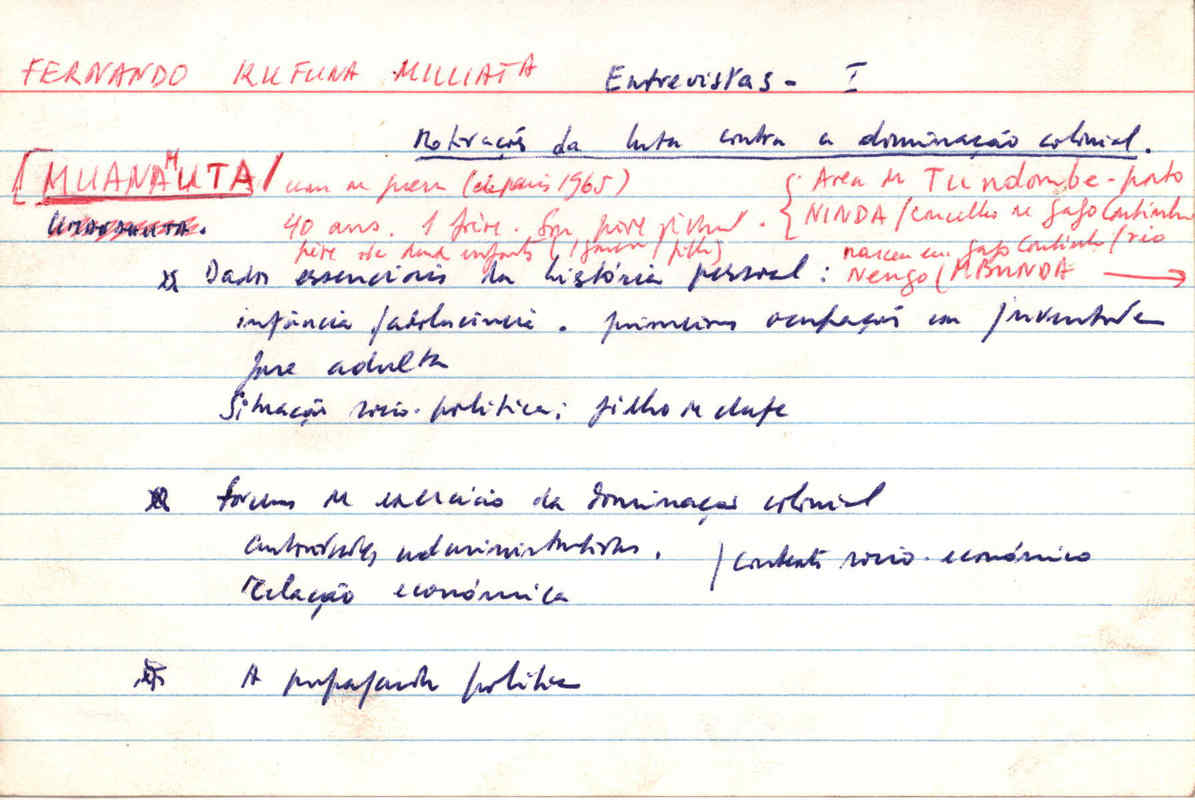 FERNANDO KUFUNA MILIATA Entrevistas - I
Motivações da luta contra a dominação colonial.
[MUANAHUTA/ nom de guerre (depuis 1965) { Area de Tundombe - perto
40 ans. 1 frère. Son père NINDA / concelho de Gago Coutinho
père de deux enfants (1 garçon / fille) nasceu em Gago Coutinho / rio
Dados essenciais da história pessoal: Nengo (MBUNDA →
infância / adolescência. primeiras ocupações em juventude
fase adulta
Situação sócio-política: filho de chefe
Formas de exercício da dominação colonial
autoridades administrativas. / contexto sócio-económico
relação económica
A propaganda política